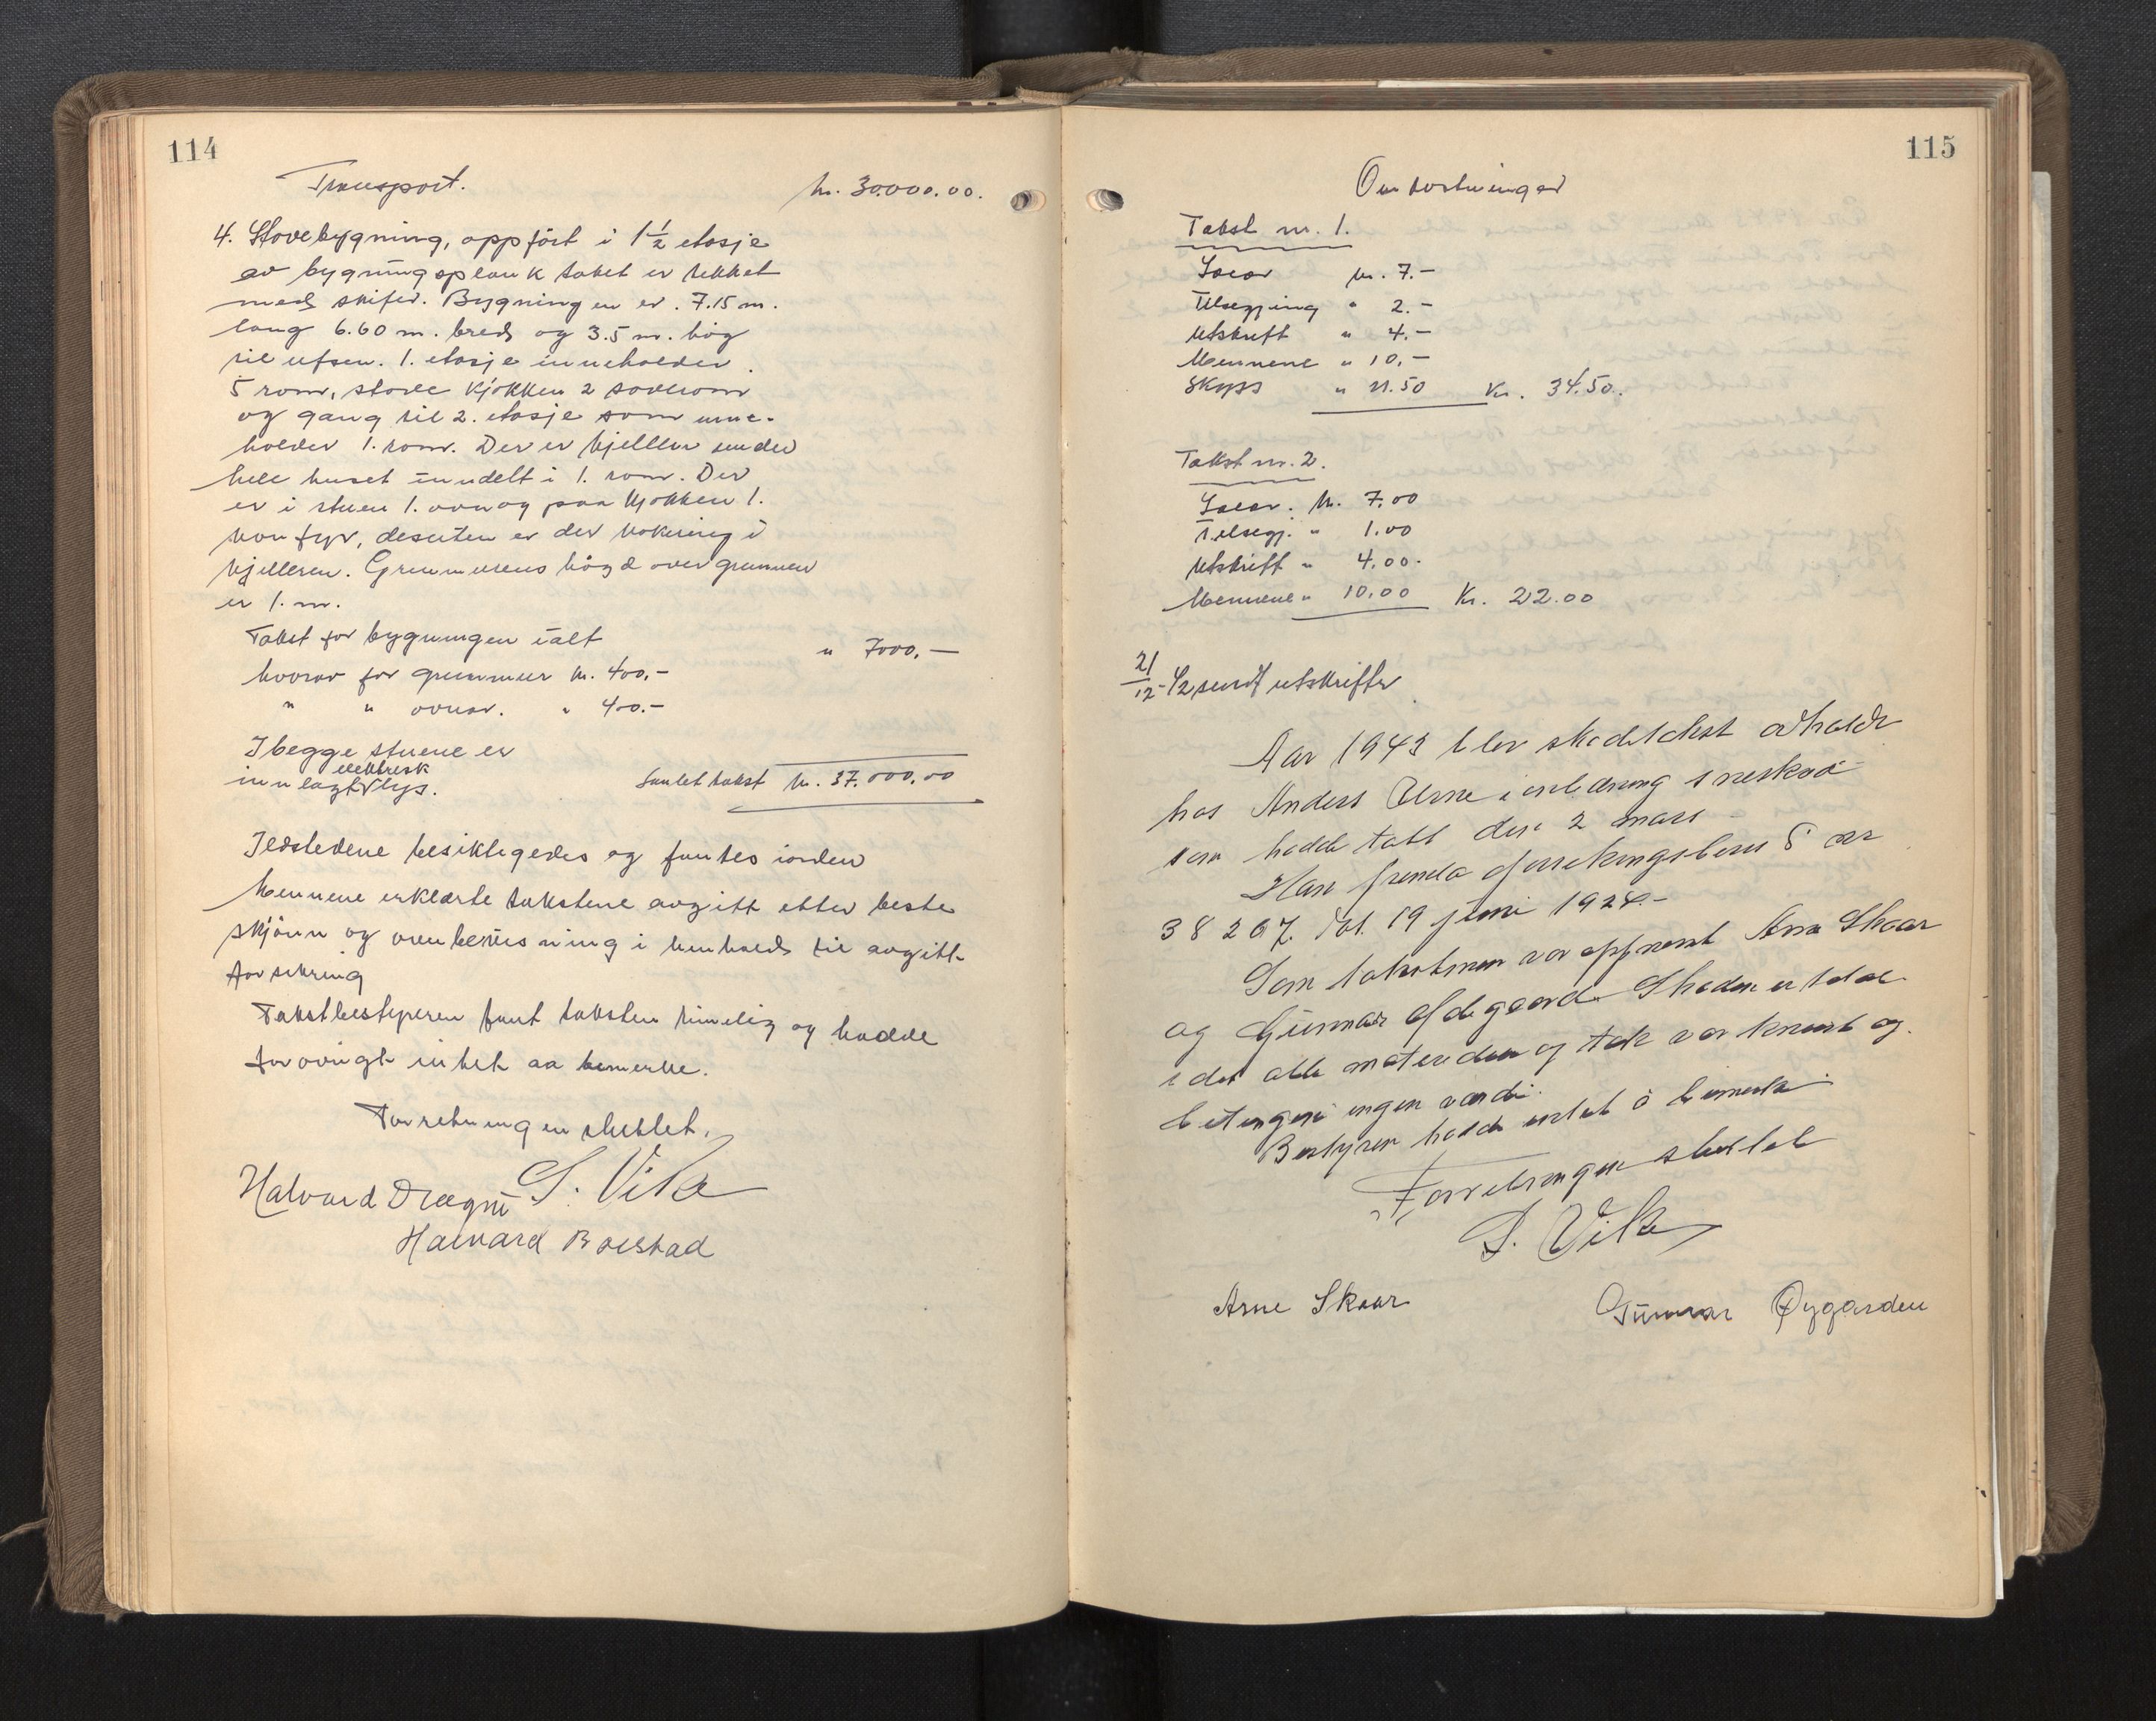 114
Transport. kr. 30.000.00.
4. Stovebygning, oppfört i 1½ etasje
av bygningsplank taket er tekket
med skifer. Bygningen er. 7.15 m.
lang 6.60 m. bred og 3.5 m. høg
til ufsen. 1. etasje inneholder
5 rom, stove kjøkken 2 soverom
og gang til 2. etasje som inne-
holder 1. rom. Der er kjelller under
hele huset inndelt i 1. rom. Der
er i stuen 1. ovn og paa kjøkken 1.
komfyr, desuten er der
kjelleren. Grunmurens högd over grunnen
er 1. m.
Takst for bygningen ialt " 7000.—
hvorav for grunmur kr. 400.-
" " ovnar. " 400.-
I begge stuene er
elektrisk
innlagt lys. Samlet takst kr. 37.000.00
Ildstedene besiktigedes og fantes iorden
Mennene erklærte takstene avgitt etter beste
skjönn og overbevisning i henhold til avgitt
forsikring
Takstbestyreren fant taksten rimelig og hadde
forövrigt intet aa bemerke.
Forretningen sluttet.
Halvard Drægni S. Vik
Halvard Bolstad
115
Omkostninger
Takst nr. 1.
Salar kr. 7.-
Tilsegjing " 2.-
Utskrift " 4.-
Mennene " 10.-
Skyss " 11.50 Kr. 34.50.
Takst nr. 2.
Salar. kr. 7.00
Tilsegj. " 1.00
Utskrift " 4.00.
Mennene " 10.00 Kr. 22.00
21/12-42 sendt utskrifter
Aar 1943 blev skadetakst avholdt
hos Anders i anledning sneskade
som hadde tatt den 2 mars
Han fremla forsikringsbevis å nr
38267. dat. 19 juni 1924.-
Som takstmen var oppnevnt Arne Skaar
og Gunnar Ødegaard Skaden er total
idet alle materialer og tak var knust og
betinger ingen værdi.
Bestyrer hadde intet å bemerke.
Forretningen sluttet
S. Vik
Arne Skaar Gunnar Øygarden